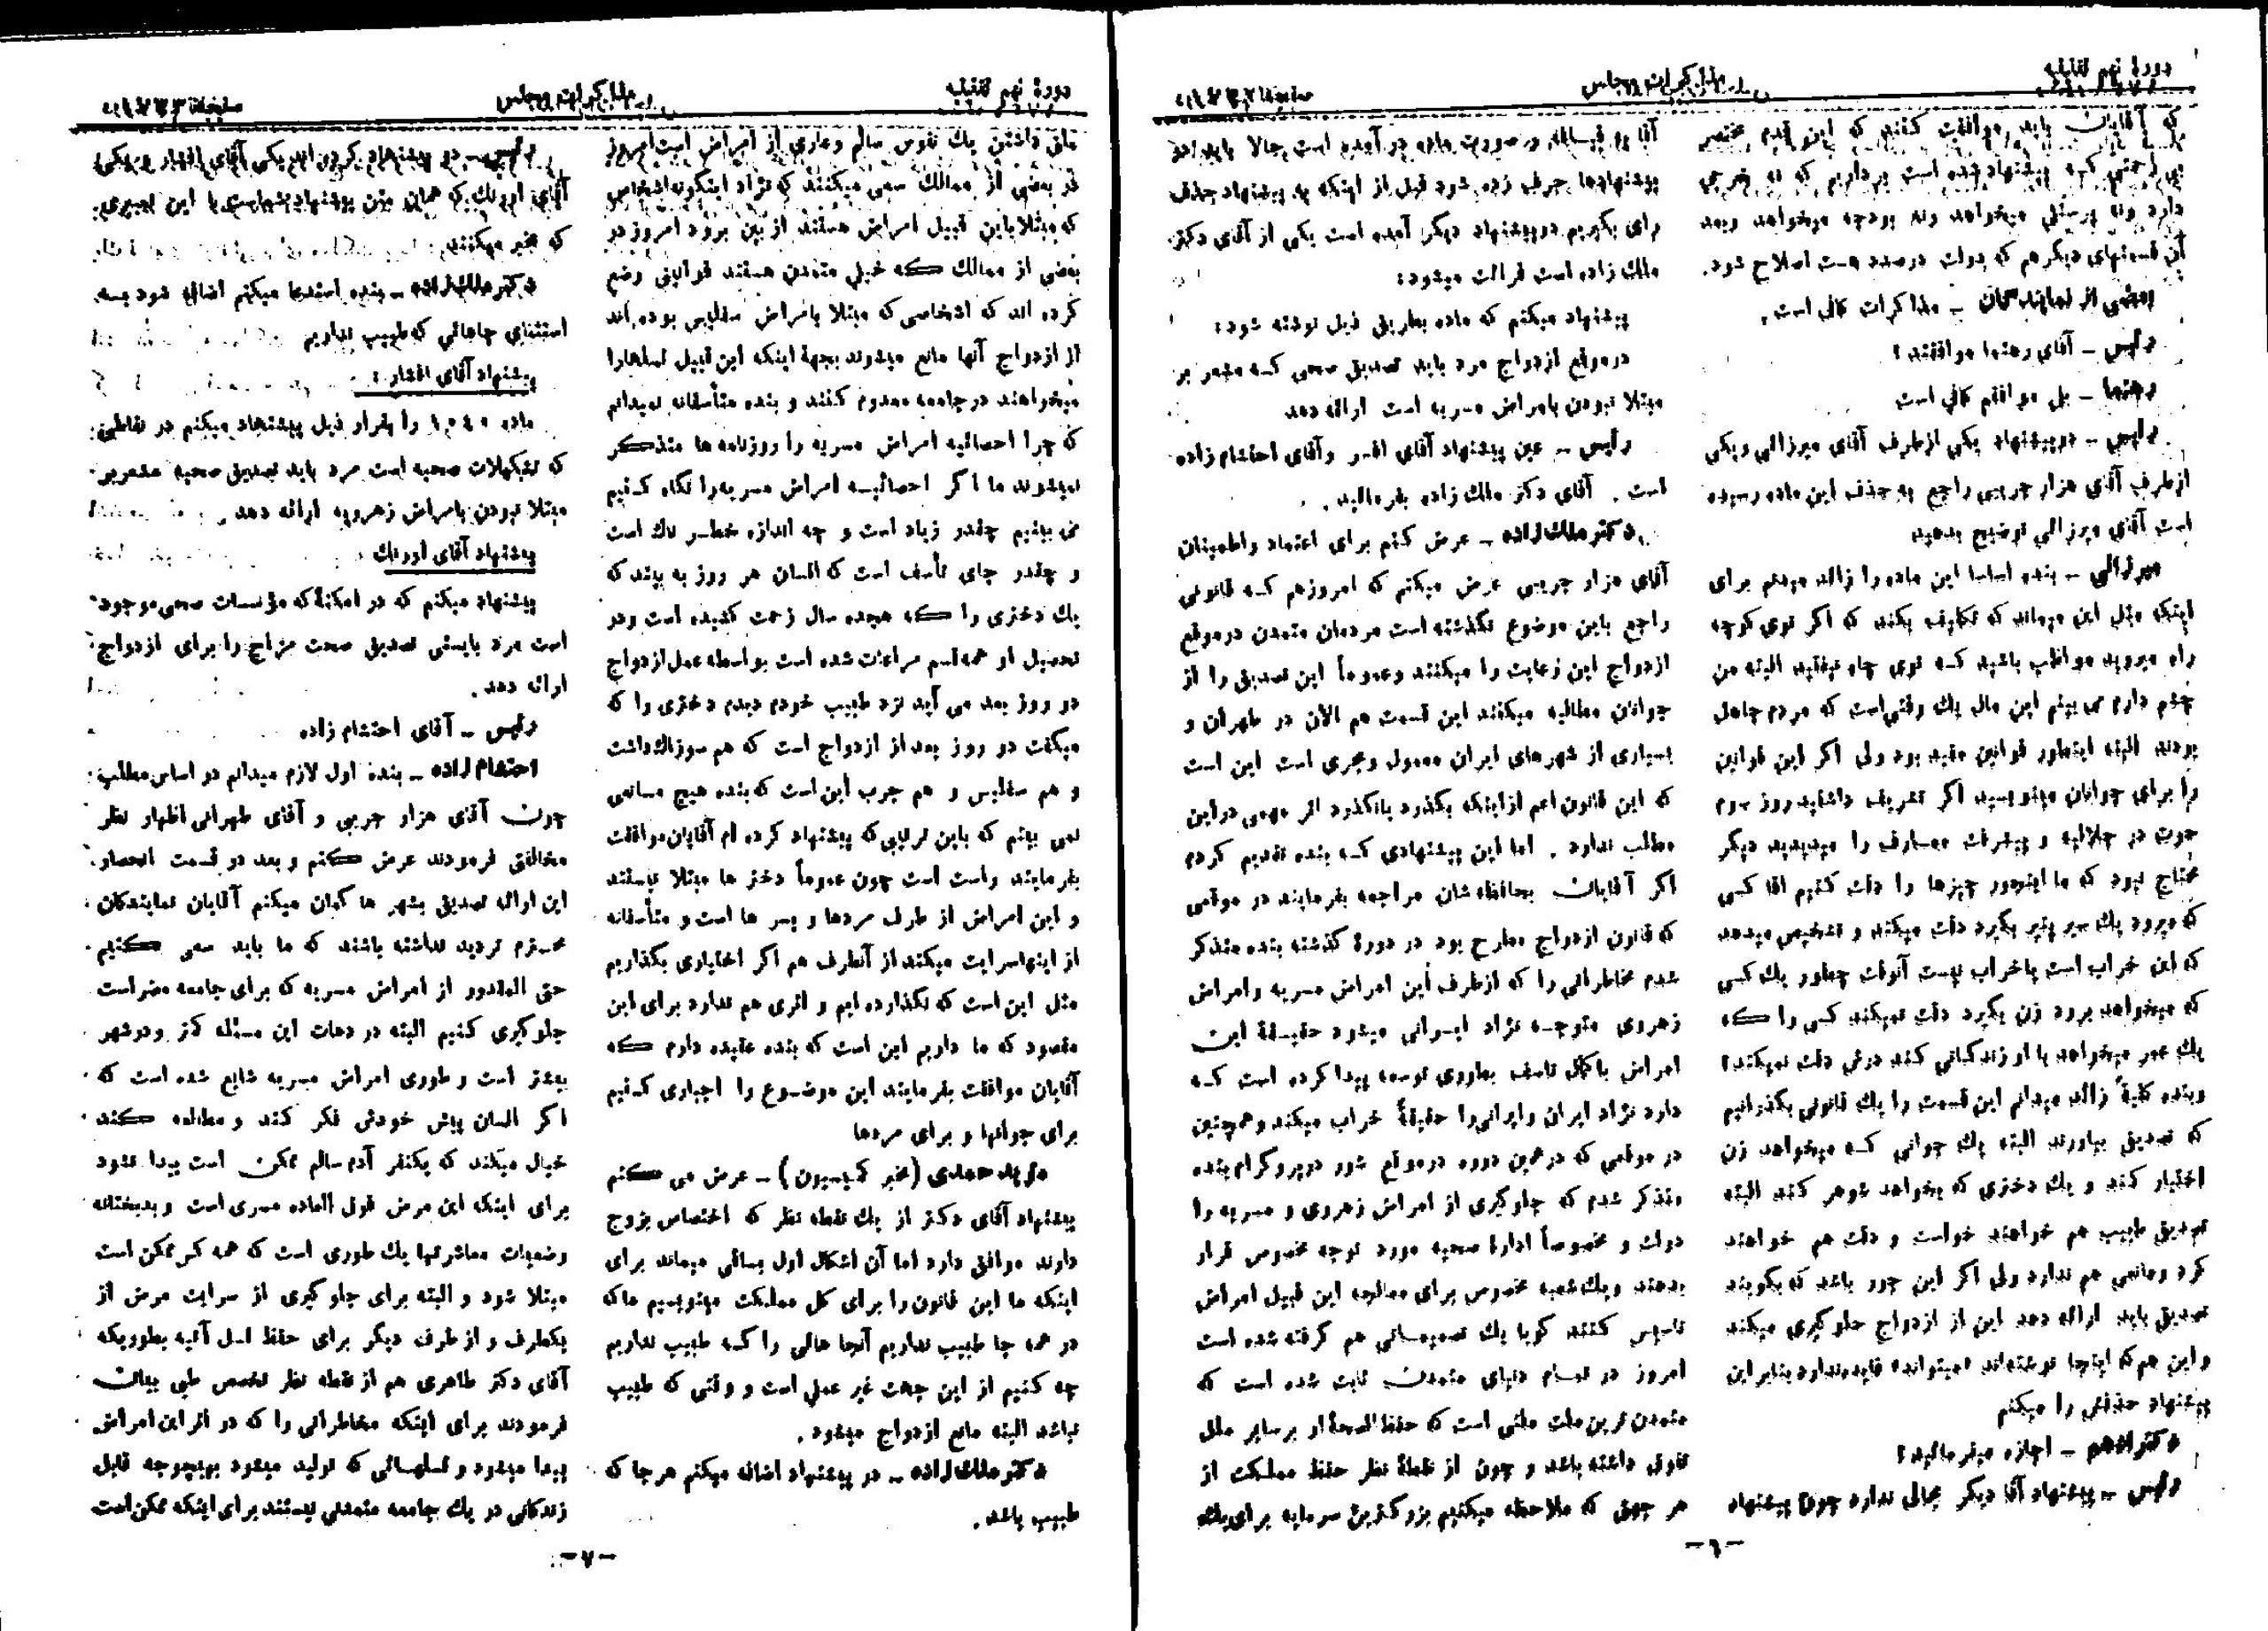 دورهٔ نهم تقنینیه
مذاکرات مجلس
که آقایان باید موافقت کنند که این قدم مختصر
بی زحمتی که پیشنهاد شده است برداریم که نه خرجی
دارد ونه پرسنلی میخواهد ونه بودجه میخواهد وبعد
آن قسمتهای دیگر هم که دولت درصدد هست اصلاح شود.
بعضی از نمایندگان – مذاکرات کافی است.
رئیس – آقای رهنما موافقند؟
رهنما – بلی موافقم کافی است
رئیس – دوپیشنهاد یکی ازطرف آقای میرزائی ویکی
ازطرف آقای هزار جریبی راجع به حذف این ماده رسیده
است آقای میرزائی توضیح بدهید
میرزائی – بنده اساسا این ماده را زائد میدانم برای
اینکه مثل این میماند که تکلیف بکنند که اگر توی کوچه
راه میروید مواظب باشید کـه توی چاه نیفتید البته من
چشم دارم می بینم این مال یك وقتی است که مردم جاهل
بودند البته اینطور قوانین مفید بود ولی اگر این قوانین
را برای جوانان مینویسید اگر تشریف داشتید روز سوم
حوت در جلالیه و پیشرفت معارف را میدیدید دیگر
محتاج نبود که ما اینجور چیزها را دقت کنیم آقا کسی
که میرود یك سیر پنیر بگیرد دقت میکند و تشخیص میدهد
که این خراب است یا خراب نیست آنوقت چطور یك کسی
که میخواهد برود زن بگیرد دقت نمیکند کسی را کـه
یك عمر میخواهد با او زندگانی کند درش دقت نمیکند؟
وبنده کلیةً زائد میدانم این قسمت را یك قانونی بگذرانیم
که تصدیق بیاورند البته یك جوانی کـه میخواهد زن
اختیار کند و یك دختری که بخواهد شوهر کند البته
تصدیق طبیب هم خواهند خواست و دقت هم خواهند
کرد ومانعی هم ندارد ولی اگر این جور باشد که بگویند
تصدیق باید ارائه دهد این از ازدواج جلوگیری میکند
و این هم که اینجا نوشته‌اند «میتواند» فایده ندارد بنابراین
پیشنهاد حذفش را میکنم
دکتر ادهم – اجازه میفرمائید؟
رئیس – پیشنهاد آقا دیگر مجالی ندارد چون پیشنهاد
رای بگیریم دوپیشنهاد دیگر آمده است یکی از آقای دکتر
ملك زاده است قرائت میشود:
پیشنهاد میکنم که ماده بطریق ذیل نوشته شود:
درموقع ازدواج مرد باید تصدیق صحی کـه مشعر بر
مبتلا نبودن بامراض مسریه است ارائه دهد
رئیس – عین پیشنهاد آقای افسر وآقای احتشام زاده
است . آقای دکتر ملك زاده بفرمائید .
دکتر ملك زاده – عرض کنم برای اعتماد واطمینان
آقای هزار جریبی عرض میکنم که امروزهم کـه قانونی
راجع باین موضوع نگذشته است مردمان متمدن درموقع
ازدواج این رعایت را میکنند وعموماً این تصدیق را از
جوانان مطالبه میکنند این قسمت هم الآن در طهران و
بسیاری از شهرهای ایران معمول ومجری است این است
که این قانون اعم ازاینکه بگذرد یانگذرد اثر مهمی دراین
مطلب ندارد . اما این پیشنهادی کـه بنده تقدیم کردم
اگر آقایان بحافظه‌شان مراجعه بفرمایند در موقعی
که قانون ازدواج مطرح بود در دورهٔ گذشته بنده متذکر
شدم مخاطراتی را که ازطرف این امراض مسریه وامراض
زهروی متوجـه نژاد ایـرانی میشود حقیقةً این
امراض باکمال تاسف بطوری توسعه پیدا کرده است کـه
دارد نژاد ایران وایرانی‌را حقیقةً خراب میکند وهمچنین
در موقعی که درهمین دوره درموقع شور درپروگرام بنده
متذکر شدم که جلوگیری از امراض زهروی و مسریه را
دولت و مخصوصاً ادارهٔ صحیه مورد توجه مخصوص قرار
بدهند ویك شعبه مخصوص برای معالجه این قبیل امراض
تاسیس کنند گویا یك تصمیماتی هم گرفته شده است
امروز در تمـام دنیای متمدن ثابت شده است که
متمدن ترین ملت ملتی است که حفظ الصحهٔ او بر سایر ملل
تفوق داشته باشد و چون از نقطهٔ نظر حفظ مملکت از
هر جهتی که ملاحظه میکنیم بزرگترین سرمایه برای یك
–٦–
دورهٔ نهم تقنینیه
مذاکرات مجلس
ملتی داشتن یك نفوس سالم وعاری از امراض است امروز
در بعضی از ممالك سعی میکنند که نژاد اینگونه اشخاص
که مبتلا باین قبیل امراض هستند از بین برود امروز در
بعضی از ممالك کـه خیلی متمدن هستند قوانینی وضع
کرده اند که اشخاصی که مبتلا بامراض سفلیس بوده‌اند
از ازدواج آنها مانع میشوند بجهة اینکه این قبیل نسلها را
میخواهند درجامعه معدوم کنند و بنده متأسفانه نمیدانم
که چرا احصائیه امراض مسریه را روزنامه ها متذکر
نمیشوند ما اگر احصائیـه امراض مسریه‌را نگاه کنیم
می بینیم چقدر زیاد است و چه اندازه خطـر ناك است
و چقدر جای تأسف است که انسان هر روز به بیند که
یك دختری را کـه هیجده سال زحمت کشیده است ودر
تحصیل او همه قسم مراعات شده است بواسطه عمل ازدواج
دو روز بعد می آید نزد طبیب خودم دیدم دختری را که
میگفت دو روز بعد از ازدواج است که هم سوزاك داشت
و هم سفلیس و هم جرب این است که بنده هیچ مـانعی
نمی بینم که باین ترتیبی که پیشنهاد کرده ام آقایان موافقت
بفرمایند راست است چون عموماً دختر ها مبتلا نیستند
و این امراض از طرف مردها و پسر ها است و متأسفانه
از اینها سرایت میکند از آنطرف هم اگر اختیاری بگذاریم
مثل این است که نگذارده ایم و اثری هم ندارد برای این
مقصود که ما داریم این است که بنده عقیده دارم کـه
آقایان موافقت بفرمایند این موضـوع را اجباری کـنیم
برای جوانها و برای مردها
مؤید احمدی (مخبر کمیسیون) – عرض می کـنم
پیشنهاد آقای دکتر از یك نقطه نظر که اختصاص بزوج
دارند موافق دارد اما آن اشکال اول بـاقی میماند برای
اینکه ما این قانون را برای کل مملکت مینویسیم ما که
در همه جا طبیب نداریم آنجا هائی را کـه طبیب نداریم
چه کنیم از این جهت غیر عملی است و وقتی که طبیب
نباشد البته مانع ازدواج میشود.
دکتر ملك زاده – در پیشنهاد اضافه میکنم هرجا که
طبیب باشد.
رئیس – دو پیشنهاد کرده اند یکی آقای افشار و یکی
که مخبر میکنند
دکتر ملك زاده – بنده استدعا میکنم اضافه شود بـه
استثنای جاهائی که طبیب نداریم
پیشنهاد آقای افشار :
ماده ۱۰٤۰ را بقرار ذیل پیشنهاد میکنم در نقاطی
که تشکیلات صحیه است مرد باید تصدیق صحیه مشعر بر
مبتلا نبودن بامراض زهرویه ارائه دهد
پیشنهاد آقای اورنك
پیشنهاد میکنم که در امکنهٔ که مؤسسات صحی موجود
است مرد بایستی تصدیق صحت مزاج را برای ازدواج
ارائه دهد .
رئیس – آقای احتشام زاده
احتشام زاده – بنده اول لازم میدانم در اساس مطلب
چون آقای هزار جریبی و آقای طهرانی اظهار نظر
مخالفی فرمودند عرض کنم و بعد در قسمت انحصار
این ارائه تصدیق بشهر ها گمان میکنم آقایان نمایندگان
محترم تردید نداشته باشند که ما باید سعی کـنیم
حتی المقدور از امراض مسریه که برای جامعه مضر است
جلوگیری کنیم البته در دهات این مسئله کمتر ودرشهر
بیشتر است و طوری امراض مسریه شایع شده است که
اگر انسان پیش خودش فکر کند و مطالعه کـند
خیال میکند که یکنفر آدم سالم ممکن است پیدا نشود
برای اینکه این مرض فوق العاده مسری است و بدبختانه
وضعیات معاشرتها یك طوری است که همه کس ممکن است
مبتلا شود و البته برای جلو گیری از سرایت مرض از
یکطرف و از طرف دیگر برای حفظ نسل آتیه بطوریکه
آقای دکتر طاهری هم از نقطه نظر تخصص طبی بیانات
فرمودند برای اینکه مخاطراتی را که در اثر این امراض
پیدا میشود و نسلهـائی که تولید میشود بهیچوجه قابل
زندگانی در یك جامعه متمدنی نیستند برای اینکه ممکن است
–۷–